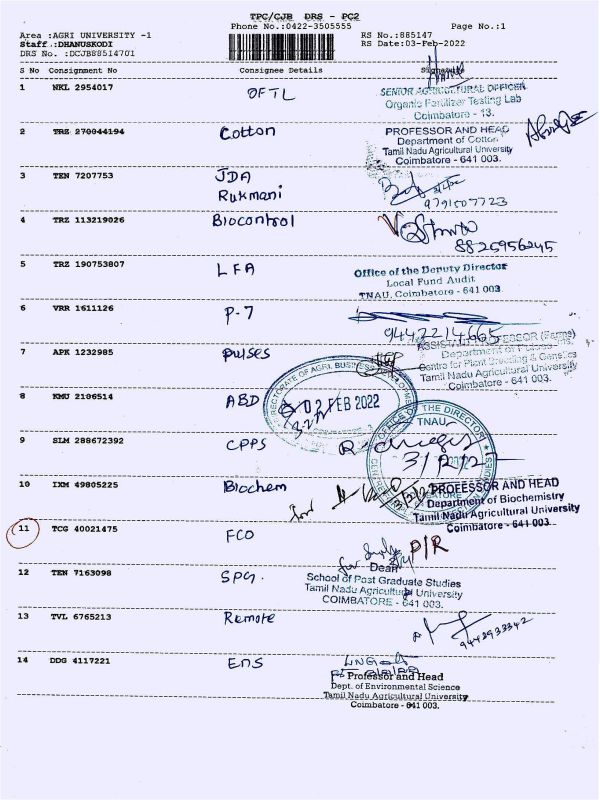 TPC/CJB DRS - PC2
Phone No.:0422-3505555
Page No.:1
Area :AGRI UNIVERSITY -1
RS No.:885147
Staff :DHANUSKODI
RS Date:03-Feb-2022
DRS No. :DCJBB8514701
S No Consignment No Consignee Details Signature
1 NKL 2954017 OFTL
SENIOR AGRICULTURAL OFFICER
Organic Fertilizer Testing Lab
Coimbatore - 13.
2 TRZ 270044194 Cotton
PROFESSOR AND HEAD
Department of Cotton
Tamil Nadu Agricultural University
Coimbatore - 641 003.
3 TEN 7207753 JDA
Rukmani
9791507723
4 TRZ 113219026 Biocontrol
8825956245
5 TRZ 190753807 LFA
Office of the Deputy Director
Local Fund Audit
TNAU, Coimbatore - 641 003
6 VRR 1611126 P-7
9442214665
7 APK 1232985 pulses
ASSISTANT PROFESSOR (Farms)
Department of Pulses
Centre for Plant Breeding & Genetics
Tamil Nadu Agricultural University
Coimbatore - 641 003.
8 KMU 2106514 ABD
DIRECTORATE OF AGRI. BUSINESS DEVELOPMENT
02 FEB 2022
9 SLM 288672392 CPPS
OFFICE OF THE DIRECTOR
TNAU
3/2/22
10 IXM 49805225 Biochem
for
PROFESSOR AND HEAD
Department of Biochemistry
Tamil Nadu Agricultural University
Coimbatore - 641 003
11 TCG 40021475 FCO
P/R
12 TEN 7163098 SPG.
for
Dean
School of Post Graduate Studies
Tamil Nadu Agricultural University
COIMBATORE - 641 003.
13 TVL 6765213 Remote
9442933342
14 DDG 4117221 ENS
Professor and Head
Dept. of Environmental Science
Tamil Nadu Agricultural University
Coimbatore - 641 003.